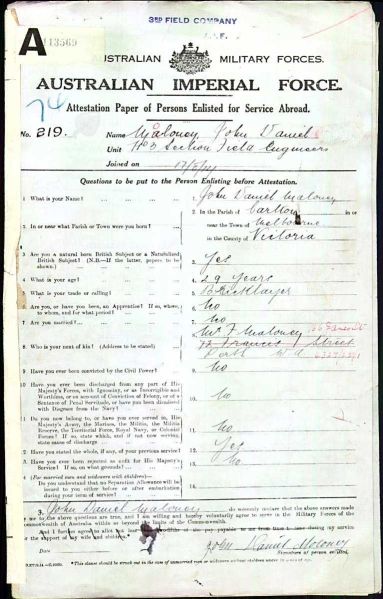 3RD FIELD COMPANY
A.I.F.
A 113569
AUSTRALIAN MILITARY FORCES.
AUSTRALIAN IMPERIAL FORCE.
Attestation Paper of Persons Enlisted for Service Abroad.
74
No. 219. Name Moloney John Daniel
Unit No 3 Section Field Engineers
Joined on
Questions to be put to the Person Enlisting before Attestation.
1. What is your Name? 1. John Daniel Moloney
2. In or near what Parish or Town were you born? 2. In the Parish of Carlton in or
near the Town of Melbourne
in the County of Victoria
3. Are you a natural born British Subject or a Naturalized
British Subject? (N.B.—If the latter, papers to be
shown). 3. Yes
4. What is your age? 4. 29 years
5. What is your trade or calling? 5. Bricklayer
6. Are you, or have you been, an Apprentice? If so, where,
to whom, and for what period? 6. No
7. Are you married? 7. No
8. Who is your next of kin? (Address to be stated) 8. Mr F Moloney
Francis Street
Perth W A
9. Have you ever been convicted by the Civil Power? 9. No
10. Have you ever been discharged from any part of His
Majesty's Forces, with Ignominy, or as Incorrigible and
Worthless, or on account of Conviction of Felony, or of a
Sentence of Penal Servitude, or have you been dismissed
with Disgrace from the Navy? 10. No
11. Do you now belong to, or have you ever served in, His
Majesty's Army, the Marines, the Militia, the Militia
Reserve, the Territorial Force, Royal Navy, or Colonial
Forces? If so, state which, and if not now serving,
state cause of discharge 11. No
12. Have you stated the whole, if any, of your previous service? 12. Yes
13. Have you ever been rejected as unfit for His Majesty's
Service? If so, on what grounds? 13. No
14. (For married men and widowers with children)—
Do you understand that no Separation Allowance will be
issued to you before or after embarkation
during your term of service? 14.
I, John Daniel Moloney do solemnly declare that the above answers made
by me to the above questions are true, and I am willing and hereby voluntarily agree to serve in the Military Forces of the
Commonwealth of Australia within or beyond the limits of the Commonwealth.
And I further agree to allot not less than of the pay payable to me from time to time during my service
for the support of my wife and children.
Date John Daniel Moloney
Signature of person enlisted.
*This clause should be struck out in the case of unmarried men or widowers without children under 18 years of age.